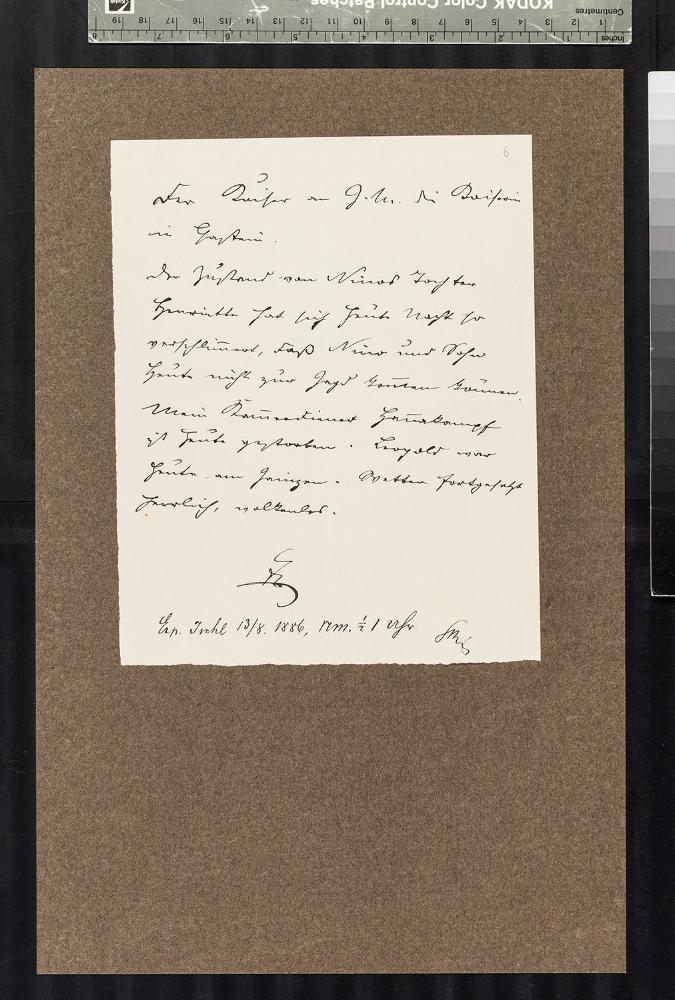 KODAK Color Control Patches
Centimetres
Inches
6
Der Kaiser an I. M. die Kaiserin
in Gastein.
Der Zustand von Ninos Tochter
Henriette hat sich heute Nacht so
verschlim̅ert, daß Nino und Sohn
heute nicht zur Jagd kom̅en kön̅en.
Mein Kam̅erdiener
ist heute gestorben. Leopold war
heute am. Wetter fortgesetzt
herrlich, wolkenlos.
Exp. Ischl 13/8. 1886, nm. ½ 1 Uhr